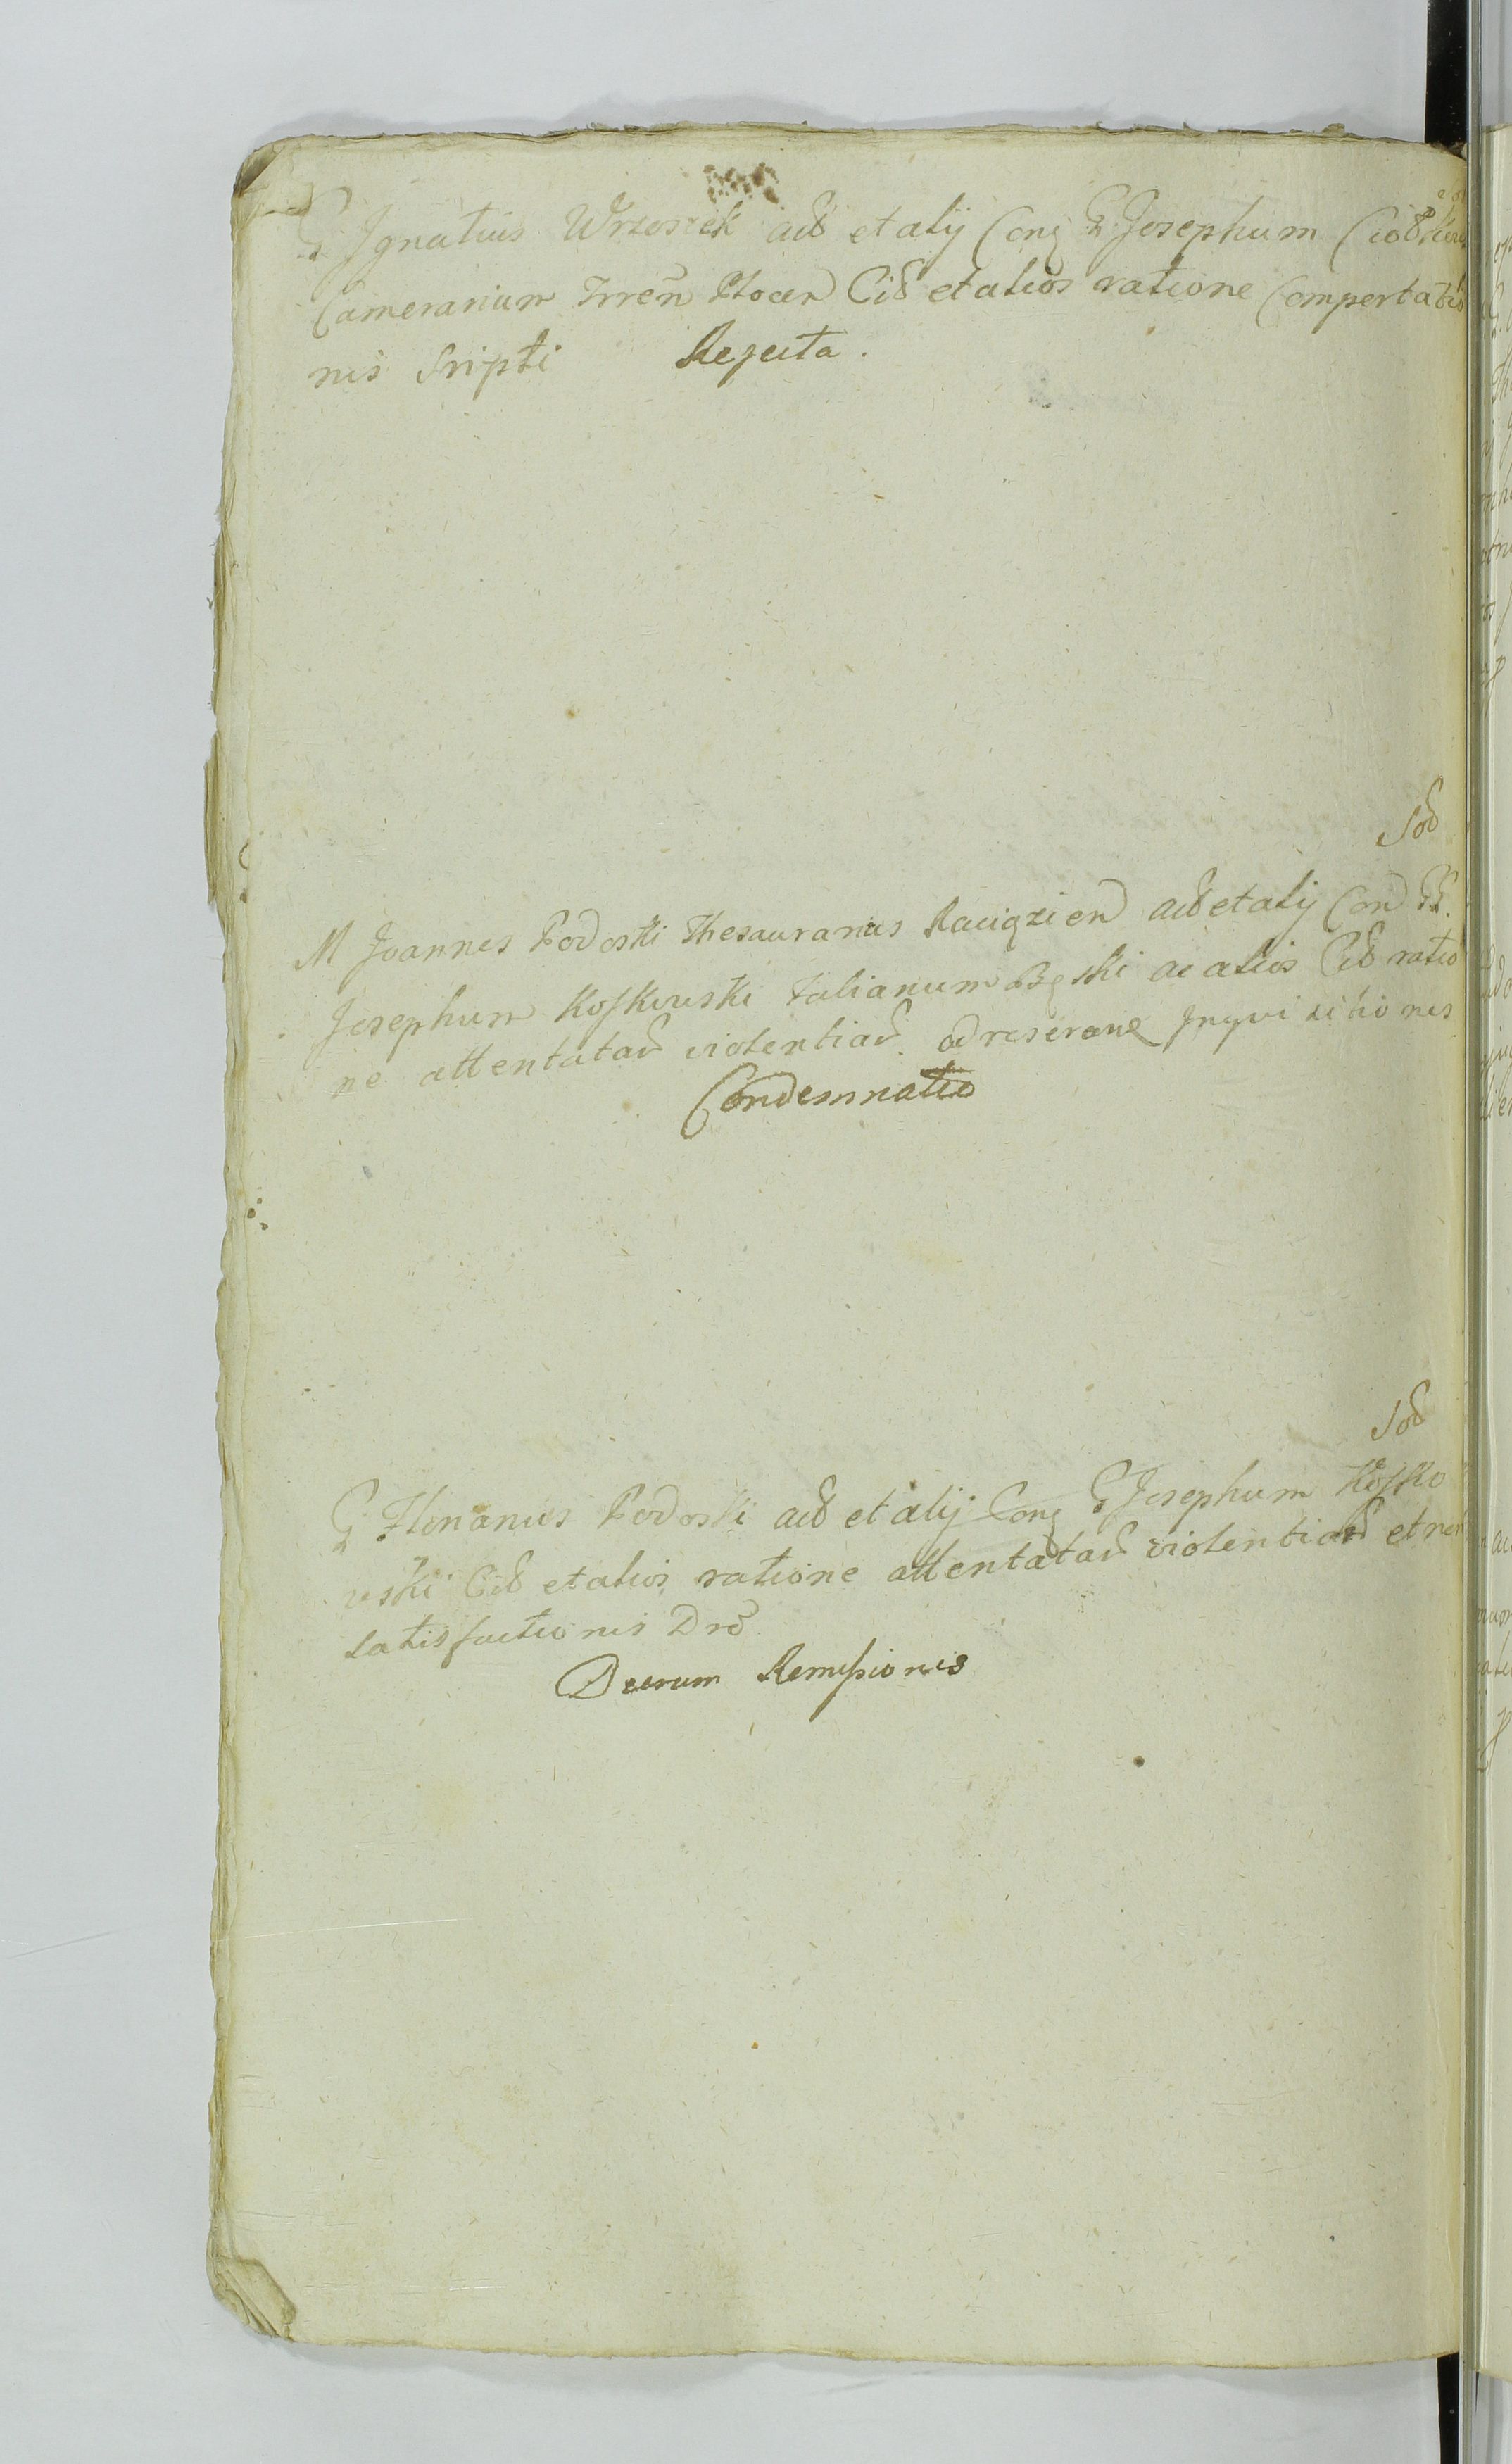 G Ignatius Wrzosek act et alij Con G Josephum
Camerarium Trren Plocen Cit et alios ratione Comportatio
nis Sripti Rejecta.
Sod
M Joannes Podoski Thesaurarius Raciązien act et alij Con GG.
Josephum Koskowski Julianum Bęski ac alios Cit ratio
ne attentatar violentiar. ad reserane Inqvisitionis
Condemnatio
Sod
G Florianus Podoski act et alij Con G Josephum Kosko
wski Cit et alios ratione attentatar violentiar et non
satisfactionis Dro
Decrum Remissionis